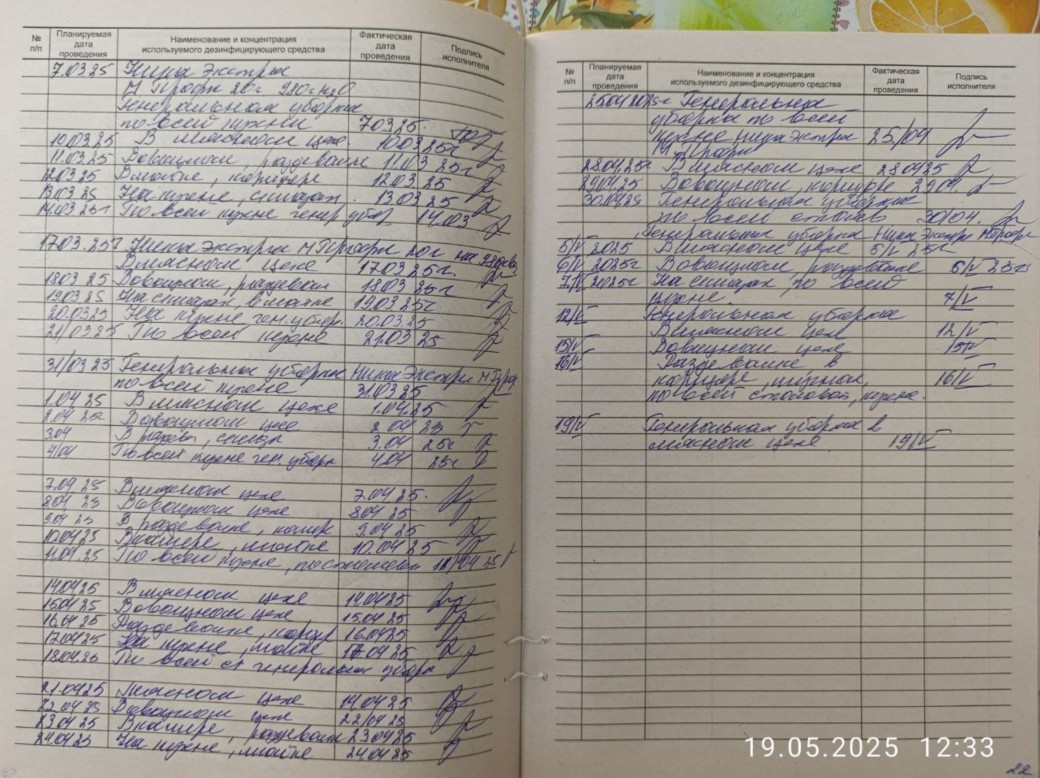 № п/п Планируемая дата проведения Наименование и концентрация используемого дезинфицирующего средства Фактическая дата проведения Подпись исполнителя
7.03 25 Ника Экстра
М Профи 20г 980г H2O
Генеральная уборка
по всей кухни 7.03 25.
10.03.25 В мясном цехе 10.03 25г
11.03 25 В овощном, раздевалке 11.03 25г
12.03.25 В мойке, коридоре 12.03 25
13.03 25 На кухне, 13.03 25
14.03 25г По всей кухне генер убор 14.03
17.03.25г Ника Экстра М Профи 20г на 980
В мясном цехе 17.03 25г.
18.03 25 В овощном, раздевал 18.03 25г
19.03 25 в мойке 19.03 25г
20.03.25 На кухне ген. убор. 20.03 25
21/03 25 По всей кухне 21.03 25
31/03 25 Генеральная уборка Ника Экстра М Проф
по всей кухне 31.03 25
1.04 25 В мясном цехе 1.04 25
2.04 25 В овощном цехе 2.04 25
3.04 В раздев, 3.04 25г
4/04 По всей кухне ген. уборк 4.04 25г
7.04 25 В мясном цехе 7.04 25.
8.04 25 В овощном цехе 8.04 25
9.04 25 В раздевалке, 9.04 25
10.04 25 мойке 10.04 25
11.04.25 По всей кухне, 11/04 25
14.04 25 В мясном цехе 14.04 25
15.04 25 В овощном цехе 15.04 25
16.04 25 Раздевалке, 16.04 25
17.04 25 На кухне, мойке 17.04 25
18.04.25 По всей ст генеральная уборк
21.04 25 Мясном цехе 14.04 25
22.04 25 В овощном цехе 22/04 25
23.04 25 раздевалке 23.04 25
24.04.25 На кухне, мойке 24.04 25
№ п/п Планируемая дата проведения Наименование и концентрация используемого дезинфицирующего средства Фактическая дата проведения Подпись исполнителя
25.04 2025г Генеральная
уборка по всей
кухне Ника Экстра 25/04
М Профи
28.04.25г В мясном цехе 28.04 25
29/04.25 В овощном, коридоре 29.04.
30.04 25 Генеральная уборка
по всей столов 30/04.
Генеральная уборка Ника Экстра М Профи
5/V 2025 В мясном цехе 5/V 25г
6/V 2025г В овощном раздевалке 6/V 25г
7/V 2025г по всей
кухне. 7/V
12/V Генеральная уборка
В мясном цехе 12/V
15/V В овощном цехе 15/V
16/V Раздевалке в
коридоре, 16/V
по всей столовой, кухне.
19/V Генеральная уборка в
мясном цехе 19/V
19.05.2025 12:33
22